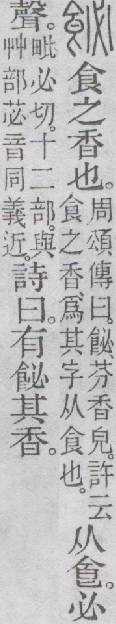 飶 食之香也。周頌傳曰。飶、芬香皃。許云食之香、爲其字从食也。从食。必
聲。毗必切。十二部。與艸部苾音同義近。詩曰。有飶其香。